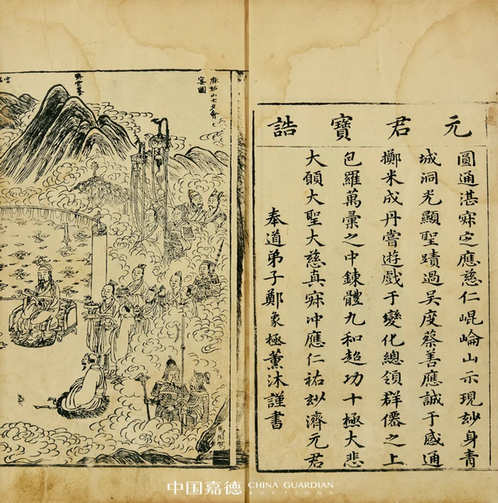 元君寶誥
圓通湛寂定應慈仁崐崙山示現玅身青
城洞光顯聖蹟過吳度蔡善應誠于感通
擲米成丹嘗遊戲于變化總領群僊之上
包羅萬彙之中鍊體九和超功十極大悲
大願大聖大慈真寂冲應仁祐玅濟元君
奉道弟子鄭象極薰沐謹書
麻姑山七夕會
宴圖
中国嘉德 CHINA GUARDIAN
AUCTIONS